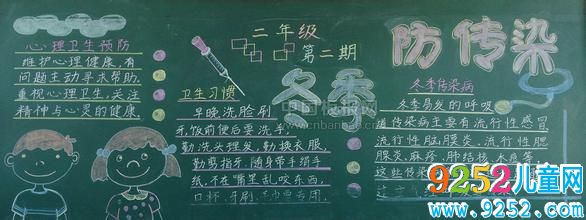 心理卫生预防
维护心理健康,有
问题主动寻求帮助.
重视心理卫生,关注
精神与心灵的健康.
二年级
第二期
卫生习惯
早晚洗脸刷
牙,饭前便后要洗手,
勤洗头理发,勤换衣服,
勤剪指甲.随身带手绢手
纸,不在嘴里乱咬东西,
口杯、牙刷
专用.
冬季
防传染
冬季传染病
冬季易发的呼吸
道传染病主要有流行性感冒
流行性脑膜炎,流行性腮
腺炎,麻疹,肺结核,水痘等
这些传染
中国板报网
www.cnbanbao.cn
9252儿童网
www.9252.com